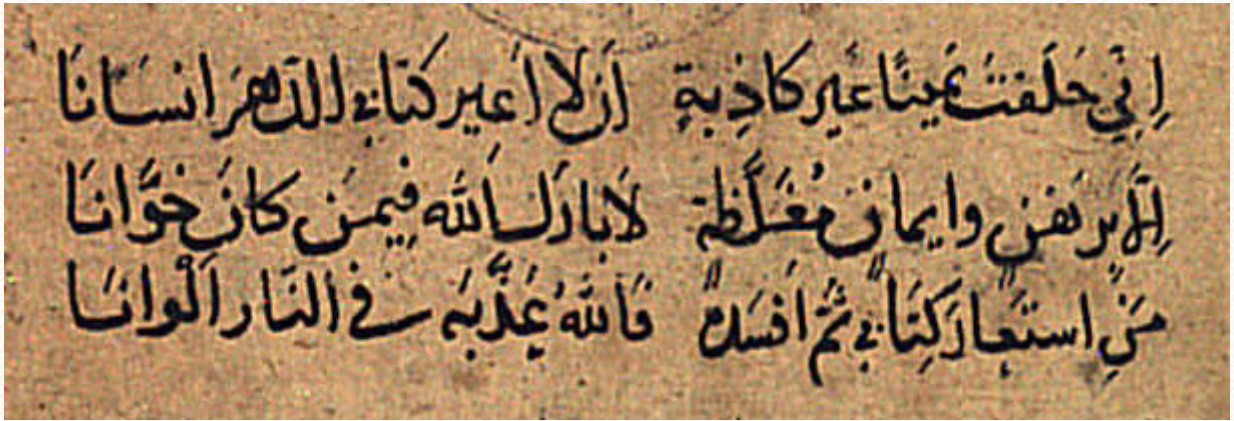 اِنّي حَلَفتُ يَمينًا غَير كاذِبةٍ اَن لا اُعير كتابي الدَّهرَ انسَانَا
وايمان مُغَلَّظة لا بارك الله فيمَن كانَ خَوَّانَا
مَنِ استَعارَ كِتابي ثُم افسَدهُ فالله يُعَذِّبه في النّار اَلْوانَا